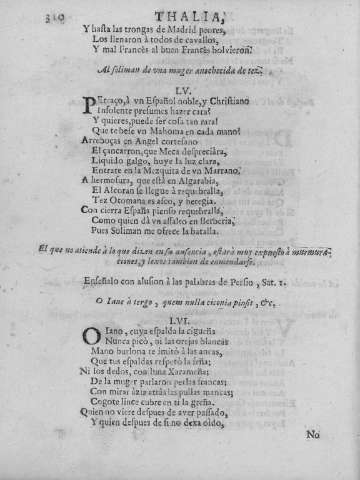 310
THALIA,
Y hasta las trongas de Madrid peores,
Los llenaron à todos de cavallos,
Y mal Francès al buen Francès bolvieron.
Al soliman de vna muger anochecida de tez.
LV.
PEgaço, à vn Español noble, y Christiano
Insolente presumes hazer cara?
Y quieres, puede ser cosa tan rara!
Que te bese vn Mahoma en cada mano!
Arrebuças en Angel cortesano
El çancarron, que Meca despreciàra,
Liquido galgo, huye la luz clara,
Entrate en la Mezquita de vn Marrano.
A hermosura, que està en Algarabia,
El Alcoran se llegue à requebralla,
Tez Otomana es asco, y heregia.
Con cierra España pienso requebralla,
Como quien dà vn assalto en Berberia,
Pues Soliman me ofrece la batalla.
El que no atiende à lo que dizen en su ausencia, estarà muy expuesto à murmura-
ciones, y lexos tambien de enmendarse.
Enseñalo con alusion à las palabras de Persio, Sat. 1.
O Iane à tergo, quem nulla ciconia pinsit, &c.
LVI.
OIano, cuya espalda la cigueña
Nunca picò, ni las orejas blancas
Mano burlona te imitò à las ancas,
Que tus espaldas respetò la seña;
Ni los dedos, con luna Xarameña;
De la muger parlaron perlas francas;
Con mirar àzia atràs las pullas mancas;
Cogote lince cubre en ti la greña.
Quien no viere despues de aver passado,
Y quien despues de si no dexa oìdo,
No